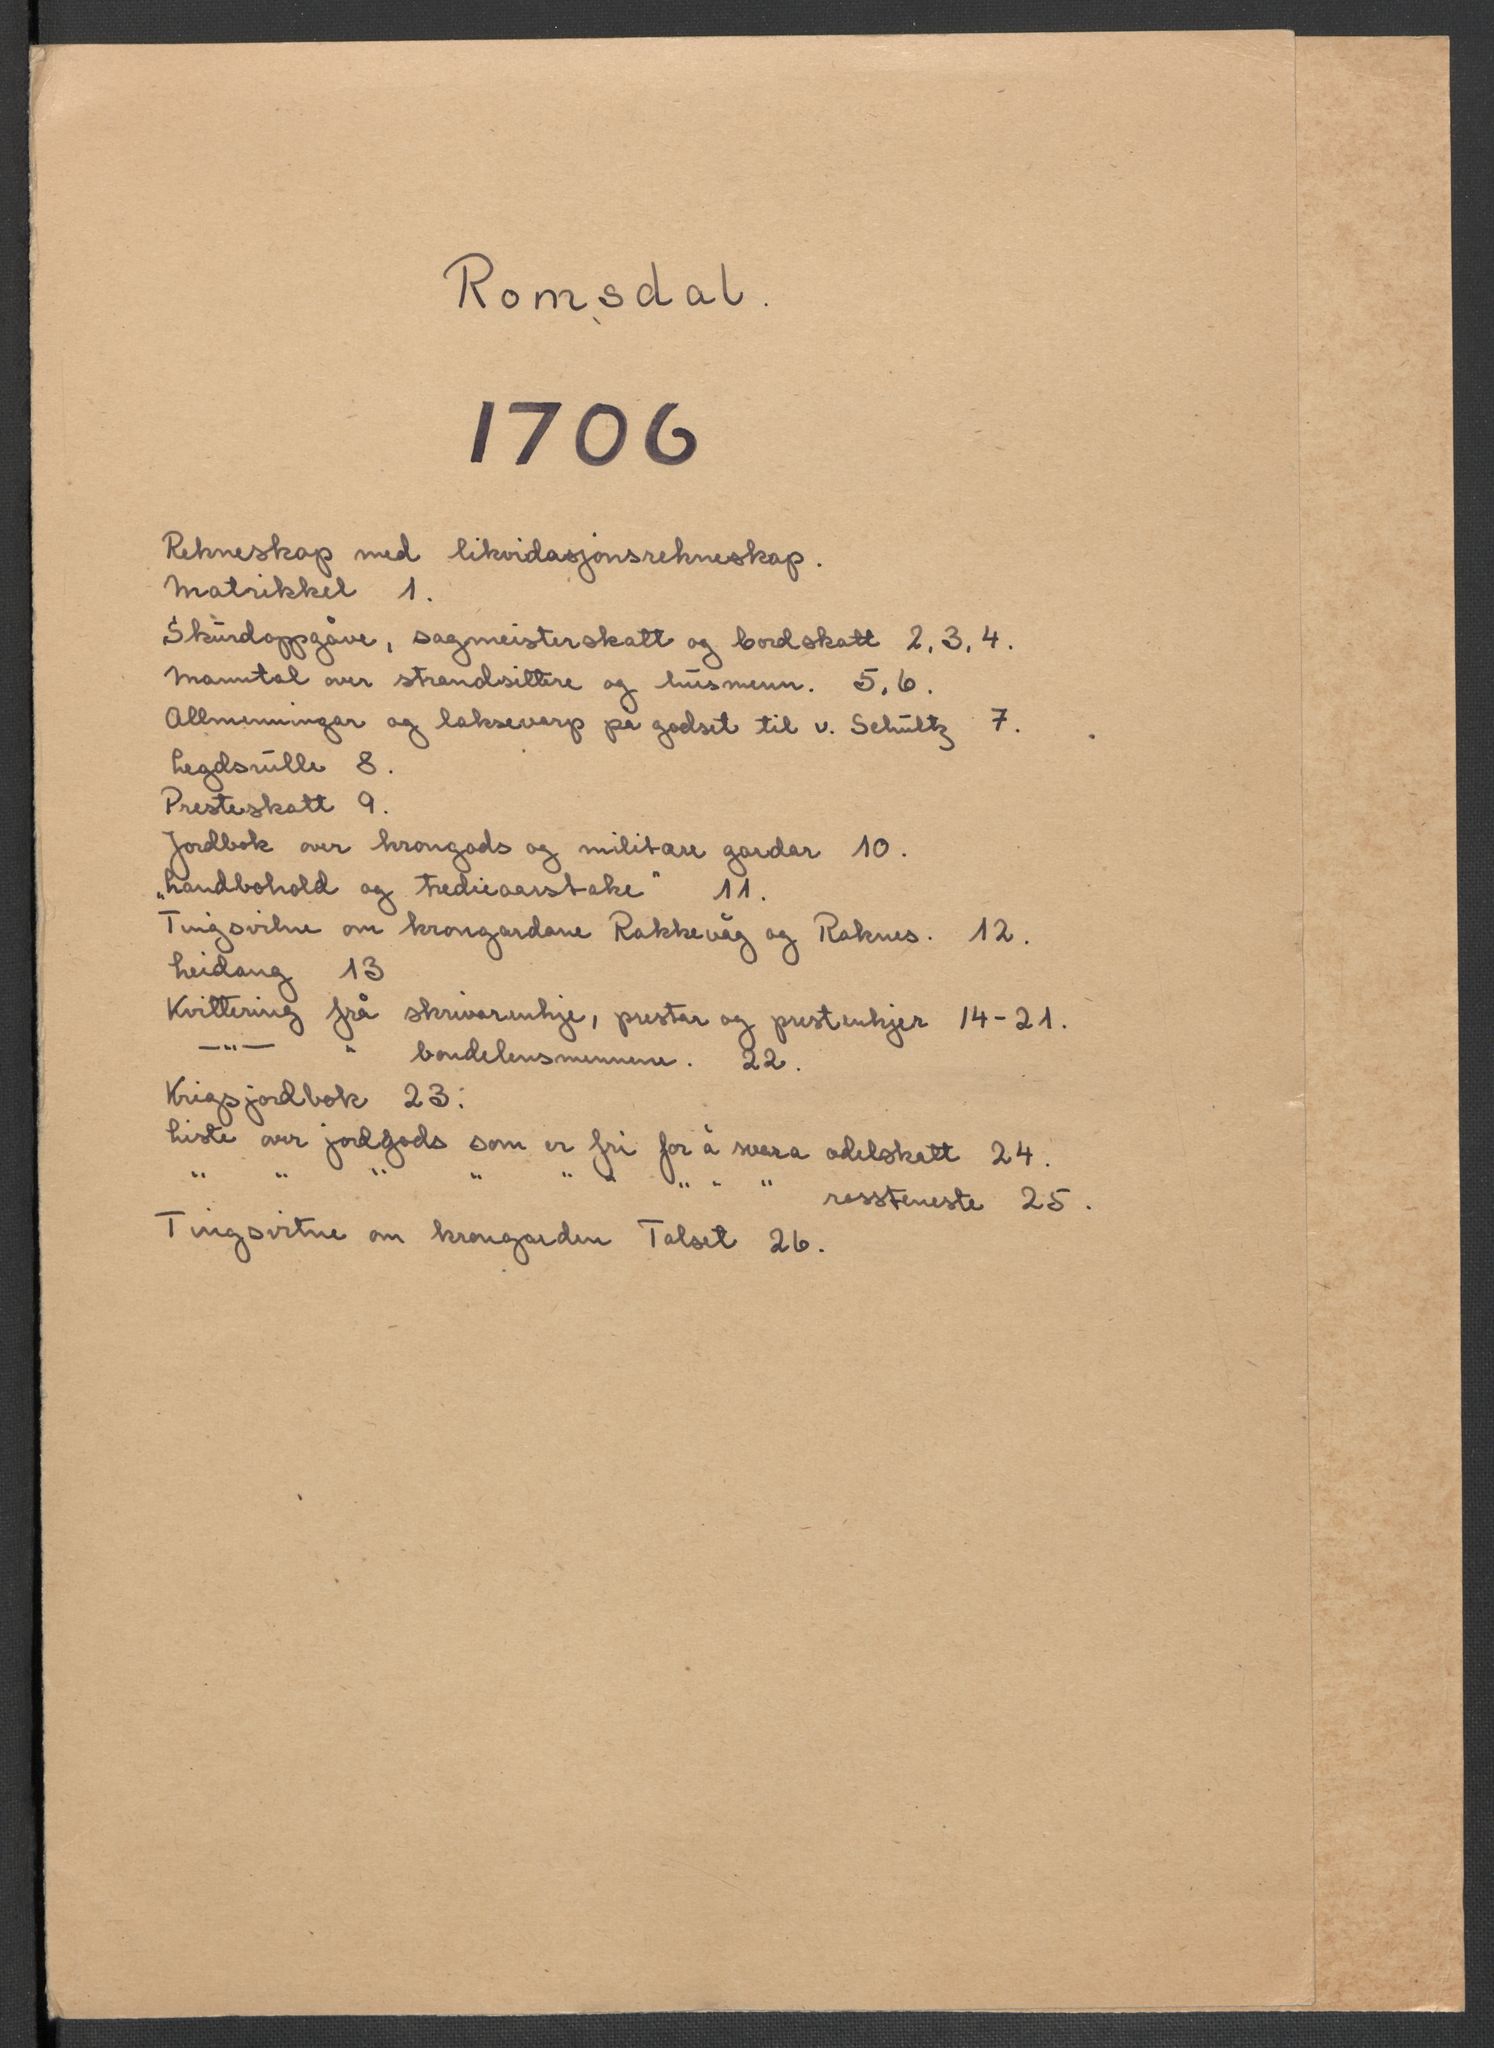 Romsdal.
1706
Rekneskap med likvidasjonsrekneskap.
Matrikkel 1.
Skurdoppgåve, sagmeisterskatt og bordskatt 2, 3, 4.
Manntal over strandsittere og husmenn. 5, 6.
Allmenningar og laksevarp på godset til v. Schultz 7.
Legdsrulle 8.
Presteskatt 9.
Jordbok over krongods og militære gardar 10.
„Landbohold og tredieaarstake" 11.
Tingsvitne om krongardane Rakkevåg og Raknes. 12.
Leidang 13
Kvittering frå skrivarenkje, prestar og prestenkjer 14-21.
—"— " bondelensmennene. 22.
Krigsjordbok 23.
Liste over jordgods som er fri for å svara odelskatt 24.
" " " " " " " " " rossteneste 25.
Tingsvitne om krongarden Talset 26.